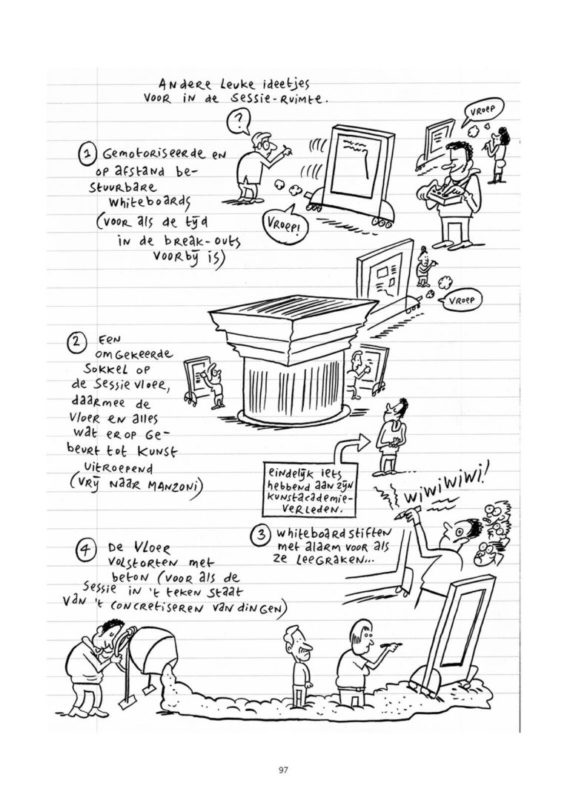 Andere leuke ideetjes
voor in de sessie-ruimte.
?
vroep
1 Gemotoriseerde en
op afstand be-
stuurbare
whiteboards
(voor als de tijd
in de break-outs
voorbij is)
vroep!
vroep
2 Een
omgekeerde
sokkel op
de sessievloer,
daarmee de
vloer en alles
wat erop ge-
beurt tot kunst
uitroepend
(vrij naar Manzoni)
eindelijk iets
hebbend aan zijn
kunstacademie-
verleden.
wiwiwiwi!
3 whiteboardstiften
met alarm voor als
ze leegraken...
4 De vloer
volstorten met
beton (voor als de
sessie in 't teken staat
van 't concretiseren van dingen)
97